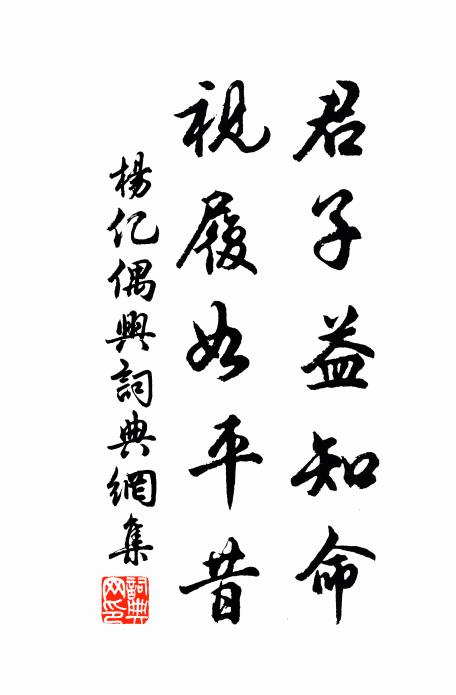 君子益知命
視履如平昔
楊亿偶興詞典網集
詞典网印